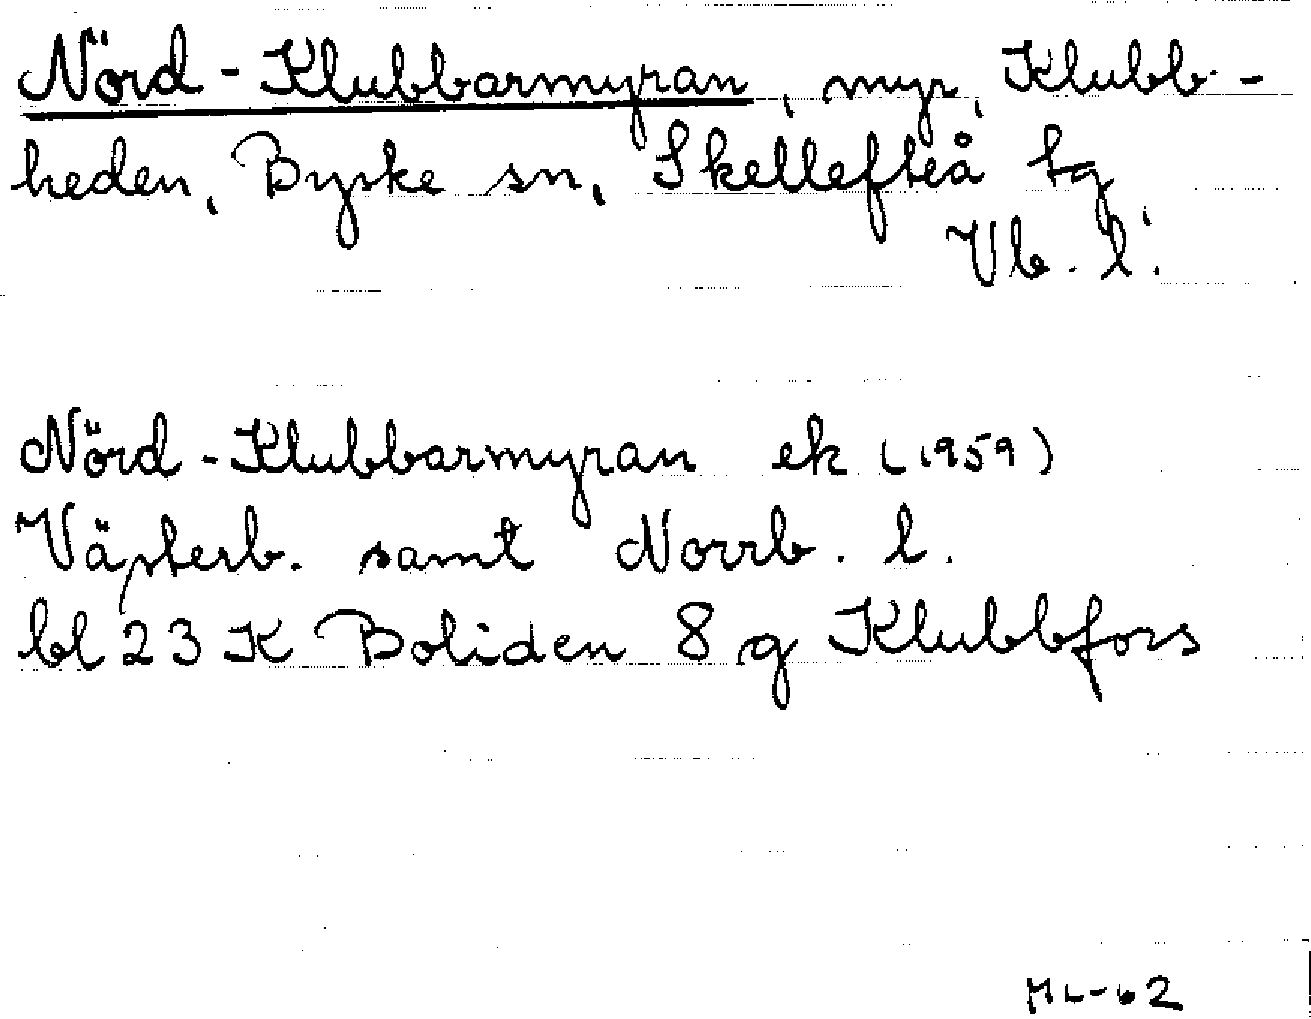 Nörd-Klubbarmyran, myr, Klubb-
heden, Byske sn, Skellefteå tg
Vb. l.
Nörd-Klubbarmyran ek (1959)
Västerb. samt Norrb. l.
bl 23 K Boliden 8 g Klubbfors
ML-62